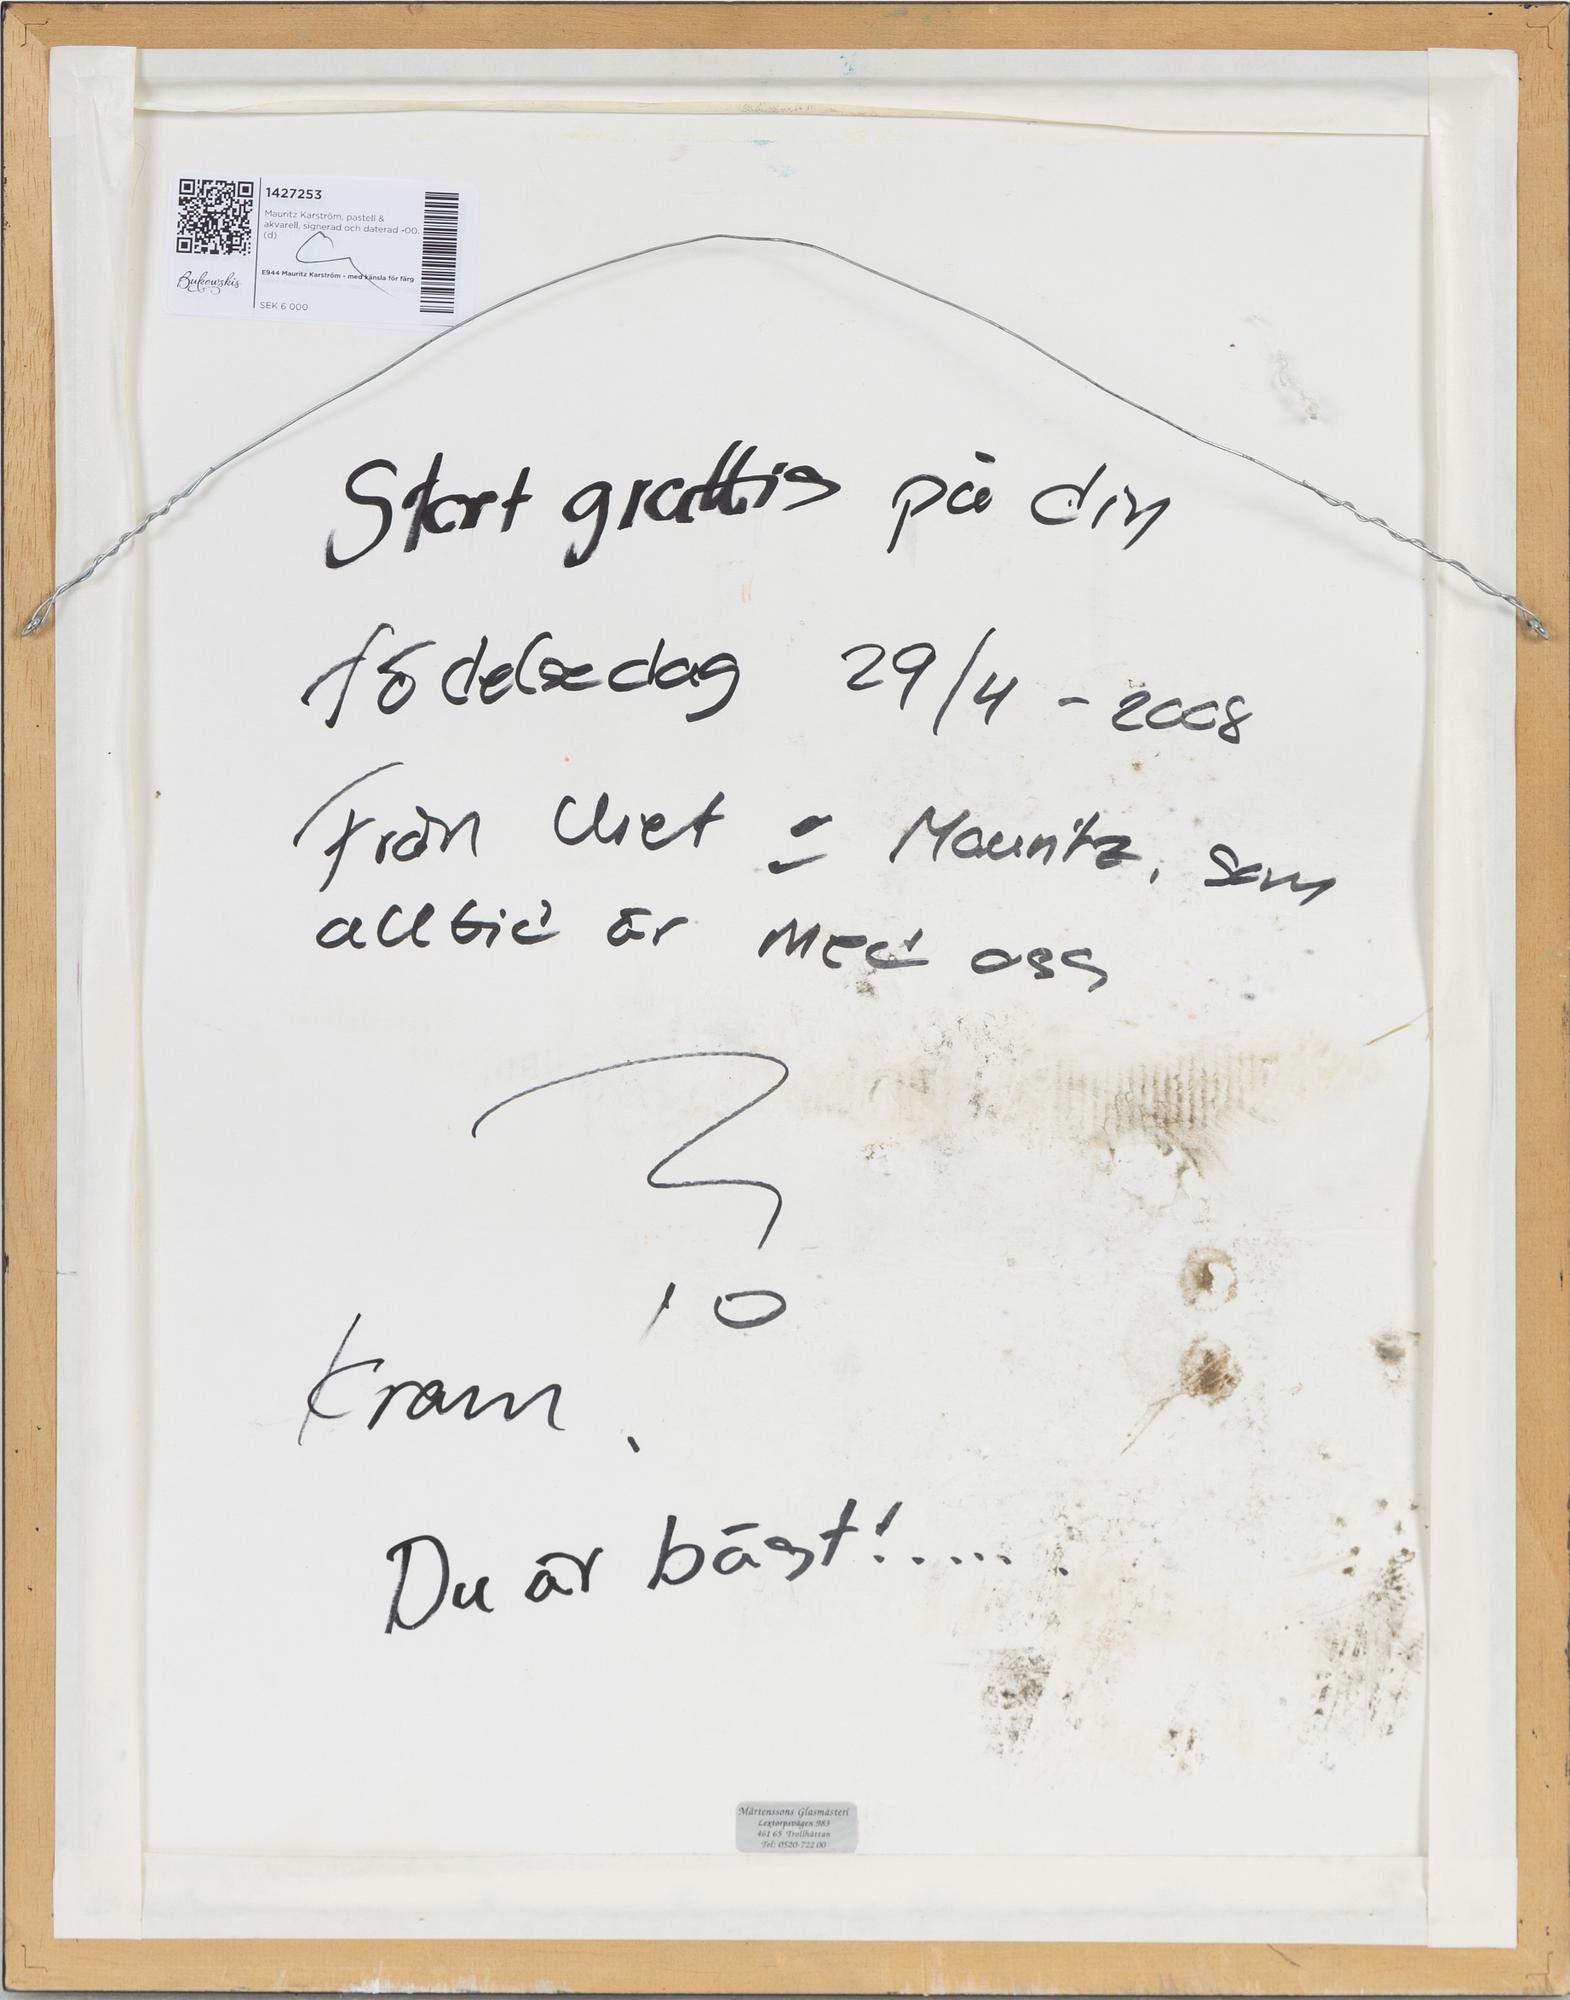 1427253
Mauritz Karström, pastell &
akvarell, signerad och daterad -00.
(d)
E944 Mauritz Karström - med känsla för färg
Bukowskis
SEK 6 000
Stort grattis på din
födelsedag 29/4 - 2008
Från Mauritz, som
alltid är med oss
Kram
Du är bäst!.....
Mårtenssons Glasmästeri
Lextorpsvägen 983
461 65 Trollhättan
Tel: 0520-722 00